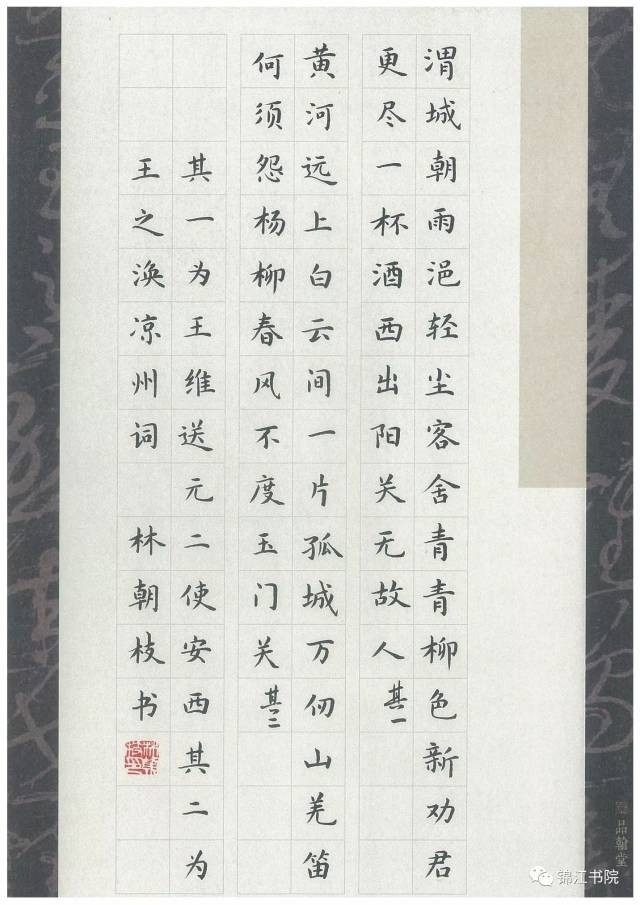 渭城朝雨浥轻尘客舍青青柳色新劝君
更尽一杯酒西出阳关无故人其一
黄河远上白云间一片孤城万仞山羌笛
何须怨杨柳春风不度玉门关其二
其一为王维送元二使安西其二为
王之涣凉州词 林朝枝书
品翰堂
锦江书院